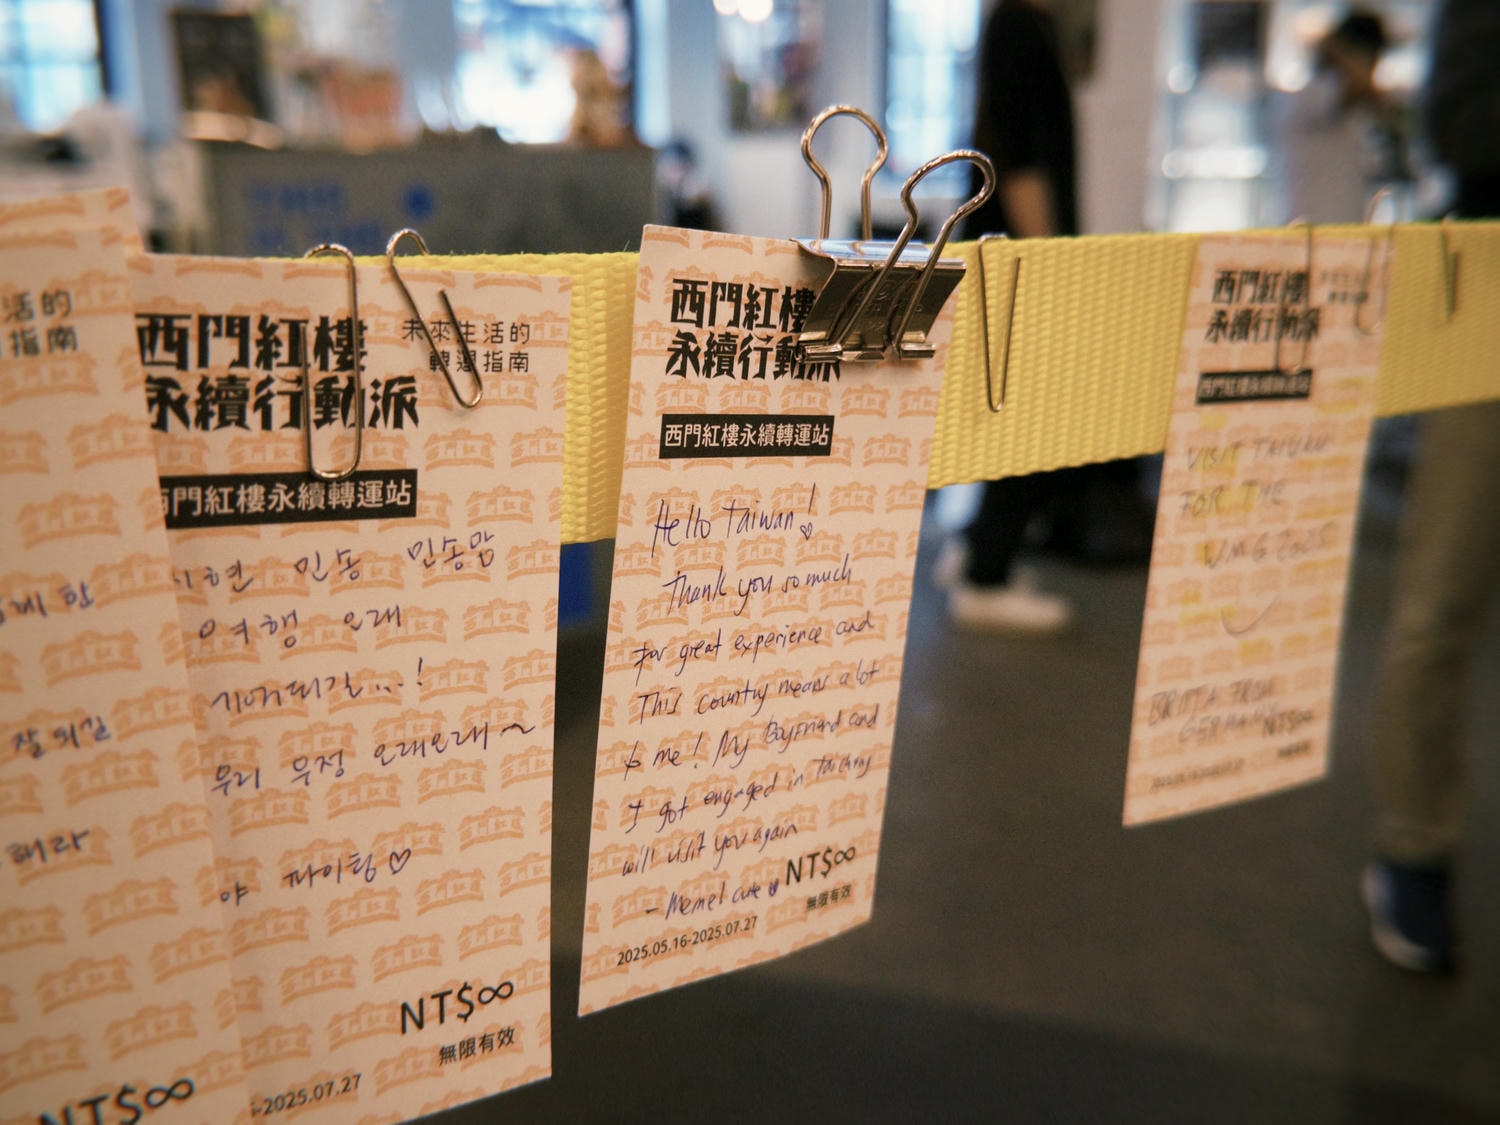 活的
指南
게 한
잘 되길
해라
NT$∞
西門紅樓
永續行動派
未來生活的
轉運指南
西門紅樓永續轉運站
시현 민송 민송맘
여행 오래
기억되길...!
우리 우정 오래오래~
야 파이팅♡
NT$∞
無限有效
-2025.07.27
西門紅樓
永續行動派
西門紅樓永續轉運站
Hello Taiwan!♡
Thank you so much
For great experience and
This country means a lot
to me! My Boyfriend and
I got engaged in
will visit you again
- Memel cute
NT$∞
無限有效
2025.05.16-2025.07.27
西門紅樓
永續行動派
西門紅樓永續轉運站
VISIT TAIWAN
FOR THE
WMG 2025
BRITTA FROM
GERMANY
NT$∞